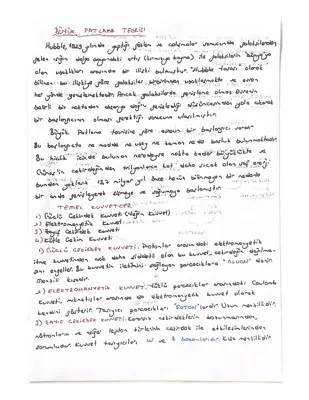 BÜYÜK PATLAMA TEORİSİ
Hubble, 1929 yılında yaptığı gözlem ve çalışmalar sonucunda galaksilerden
gelen ışığın dalga boyundaki artış (kırmızıya kayma) ile galaksilerin dünyaya
olan uzaklıkları arasında bir ilişki bulmuştur. "Hubble Yasası" olarak
bilinen bu ilişkiye göre galaksiler birbirinden uzaklaşmakta ve evren
her yönde genişlemektedir. Ancak galaksilerde genişleme olmaz. Evrenin
belirli bir noktadan dışarıya doğru genişlediği düşüncesinden yola çıkarak
bir başlangıcının olması gerektiği sonucuna ulaşılmıştır.
Büyük Patlama teorisine göre evrenin bir başlangıcı vardır.
Bu başlangıçta ne madde ne uzay ne zaman ne de boşluk bulunmaktadır.
Bu hiçlik içinde bulunan neredeyse nokta kadar büyüklükte ve
Güneş'in çekirdeğinden trilyonlarca kat daha sıcak olan saf enerji
bundan yaklaşık 13,7 milyar yıl önce henüz bilinmeyen bir nedenle
bir anda genişleyerek dünyaya ve soğumaya başlamıştır.
TEMEL KUVVETLER
1) Güçlü Çekirdek Kuvveti (Yeğin Kuvvet)
2) Elektromanyetik Kuvvet
3) Zayıf Çekirdek Kuvveti
4) Kütle Çekim Kuvveti
1) GÜÇLÜ ÇEKİRDEK KUVVETİ: Protonlar arasındaki elektromanyetik
itme kuvvetinden çok daha şiddetli olan bu kuvvet, çekirdeğin dağılma-
sını engeller. Bu kuvvetin iletimini sağlayan parçacıklara "GLUON" denir.
Menzili kısadır.
2) ELEKTROMANYETİK KUVVET: Yüklü parçacıklar arasındaki Coulomb
kuvveti, mıknatıslar arasında da elektromanyetik kuvvet olarak
kendini gösterir. Taşıyıcı parçacıkları "FOTON"lardır. Uzun menzillidir.
3) ZAYIF ÇEKİRDEK KUVVETİ: Kararsız çekirdeklerin bozunmasından,
nötronların ve diğer lepton türlerinin çekirdek ile etkileşimlerinden
sorumludur. Kuvvet taşıyıcıları W ve Z bozonlarıdır. Kısa menzillidir.